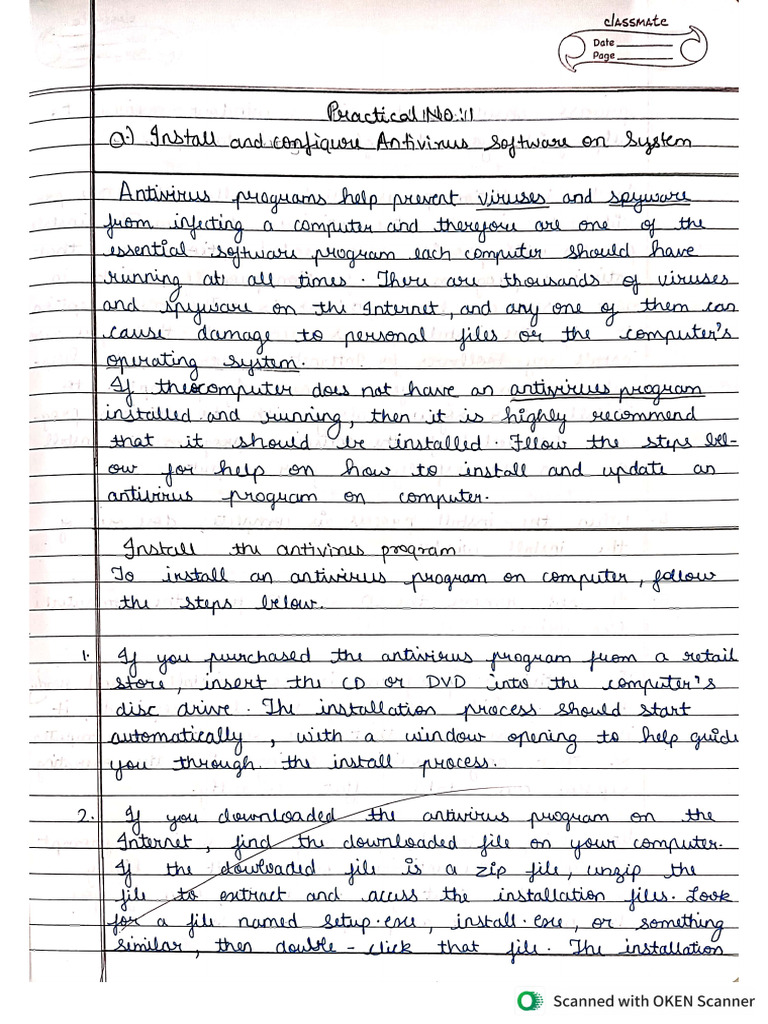 classmate
Date
Page
Practical No:1
a.) Install and configure Antivirus Software on System
Antivirus programs help prevent viruses and spyware
from infecting a computer and therefore are one of the
essential software program each computer should have
running at all times. There are thousands of viruses
and spyware on the Internet, and any one of them can
cause damage to personal files or the computer's
operating system.
If the computer does not have an antivirus program
installed and running, then it is highly recommend
that it should be installed. Fllow the steps bel-
ow for help on how to install and update an
antivirus program on computer.
Install the antivirus program
To install an antivirus program on computer, follow
the steps below.
1. If you purchased the antivirus program from a retail
store, insert the CD or DVD into the computer's
disc drive. The installation process should start
automatically, with a window opening to help guide
you through the install process.
2. If you downloaded the antivirus program on the
Internet, find the downloaded file on your computer.
If the dowloaded file is a zip file, unzip the
file to extract and acess the installation files. Look
for a file named setup.exe, install.exe, or something
similar, then double-click that file. The installation
Scanned with OKEN Scanner